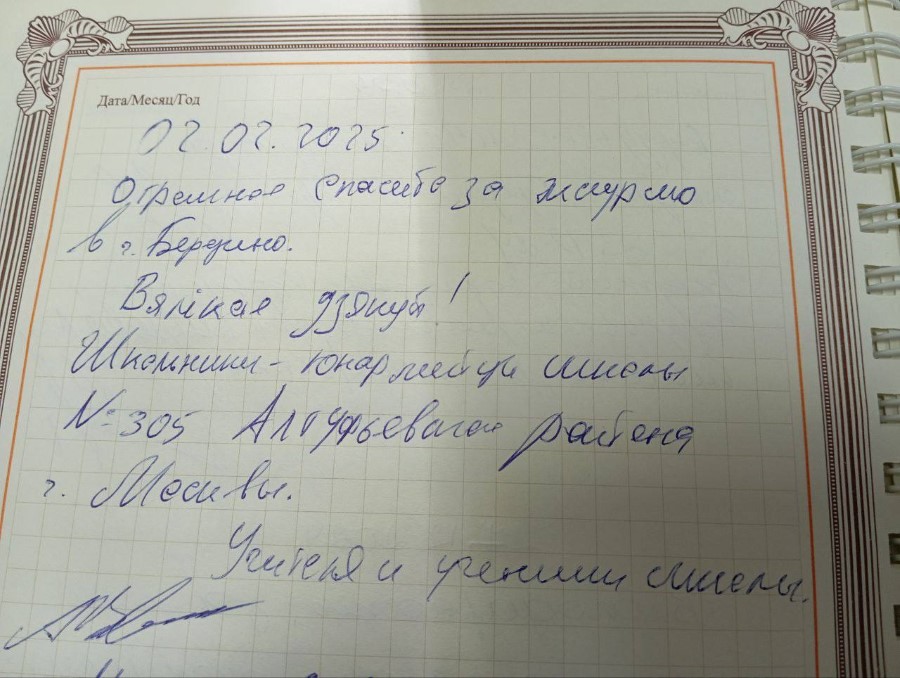 Дата/Месяц/Год
02.02.2025
Огромное спасибо за экскурсию
в г. Бердино.
Вялікае дзякуй!
Школьники - юнармейцы школы
№ 305 Алтуфьевского района
г. Москвы.
Учителя и ученики школы.